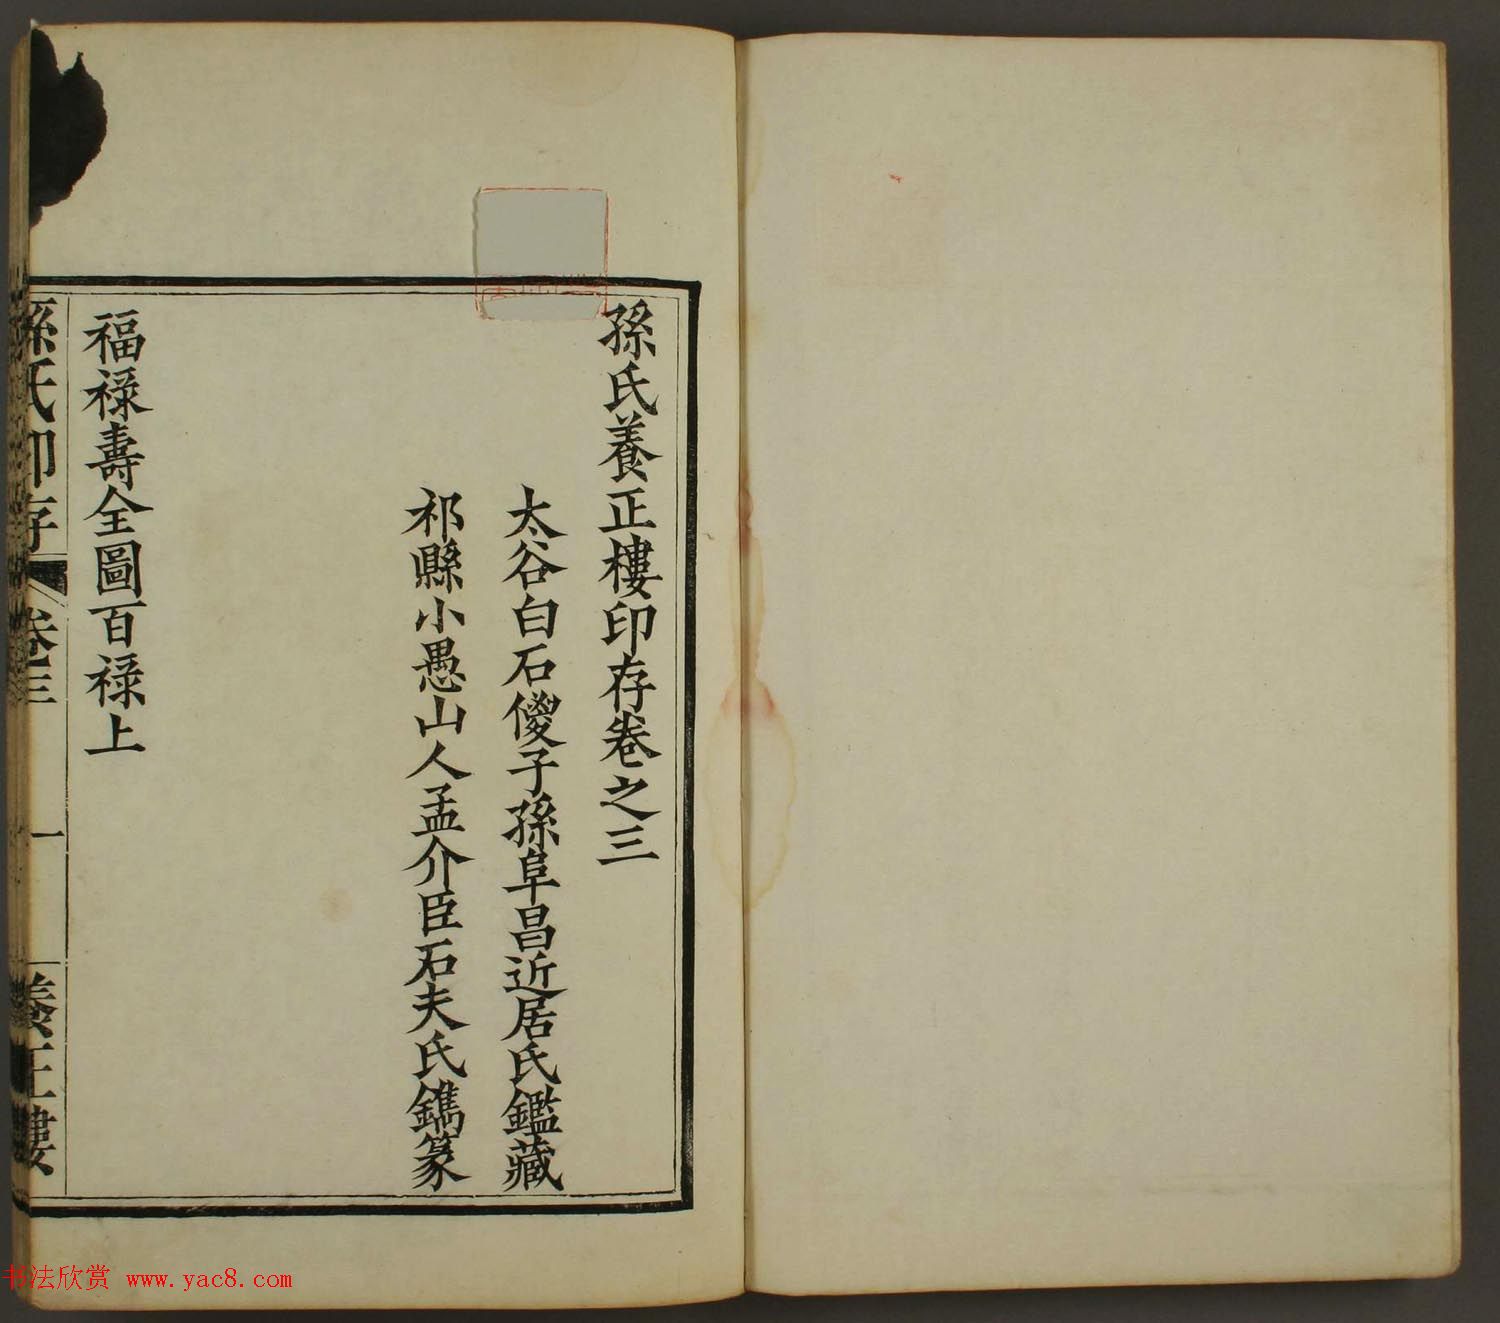 孫氏養正樓印存卷之三
太谷白石傻子孫阜昌近居氏鑑藏
祁縣小愚山人孟介臣石夫氏鐫篆
福祿壽全圖百祿上
孫氏印存 卷三 一 養正樓
书法欣赏 www.yac8.com